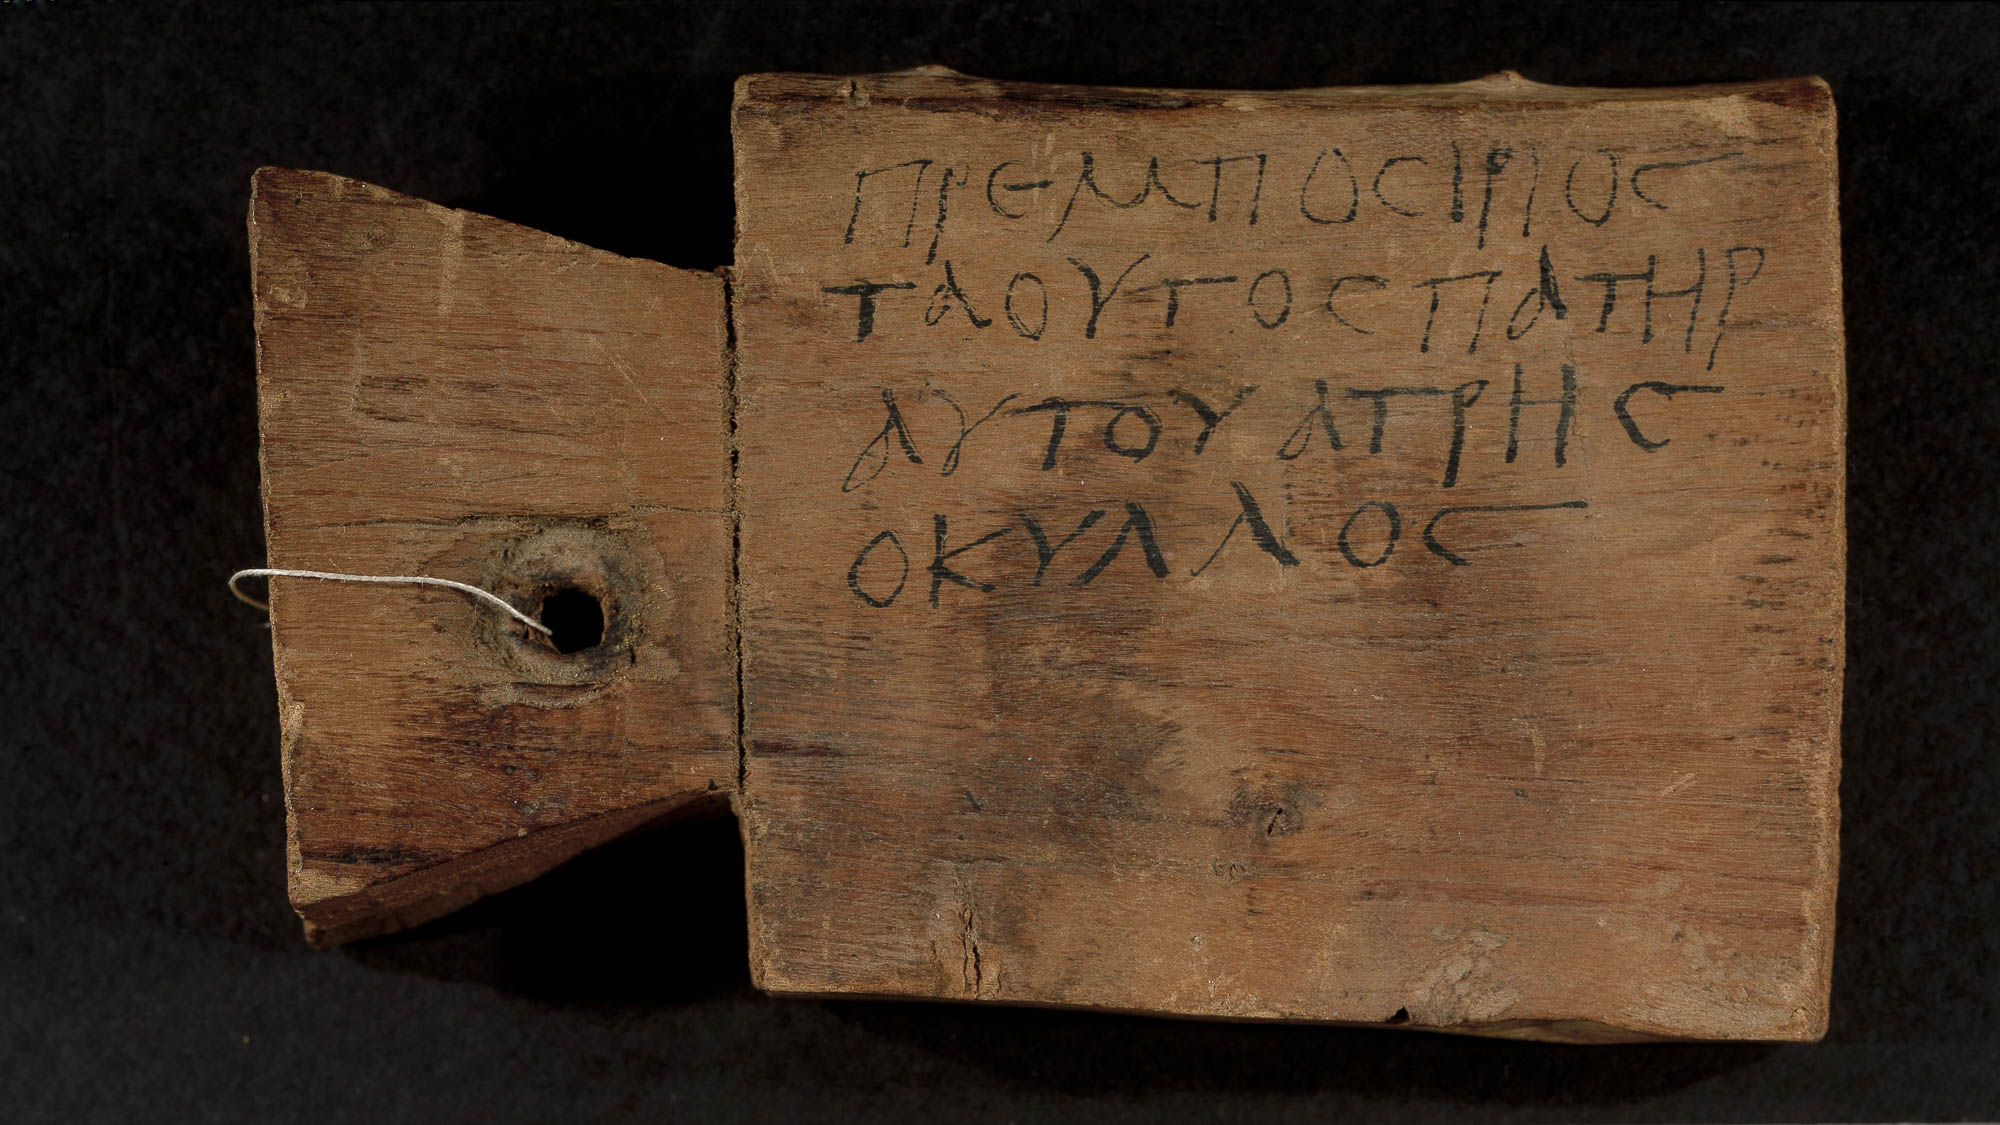 ΠΡΕΜΠΟΣΙΡΙΟΣ
ΤΑΟΥΤΟΣΠΑΤΗΡ
ΑΥΤΟΥΑΤΡΗΣ
ΟΚΥΛΛΟΣ